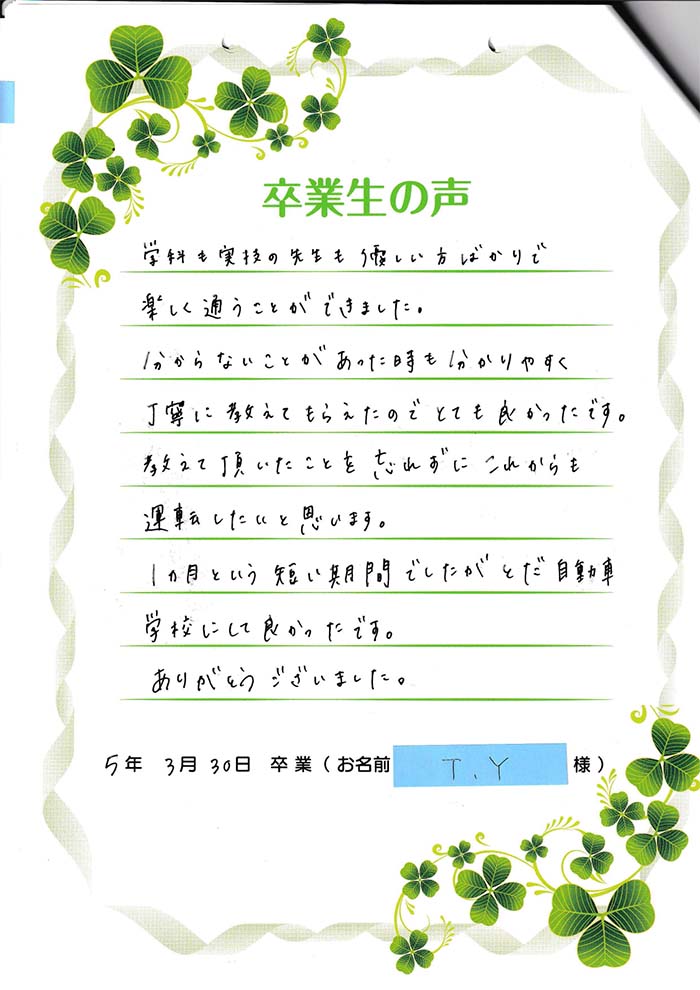 卒業生の声
学科も実技の先生も優しい方ばかりで
楽しく通うことができました。
分からないことがあった時も分かりやすく
丁寧に教えてもらえたのでとても良かったです。
教えて頂いたことを忘れずにこれからも
運転したいと思います。
1カ月という短い期間でしたがとだ自動車
学校にして良かったです。
ありがとうございました。
5年 3月 30日 卒業(お名前 T.Y 様)